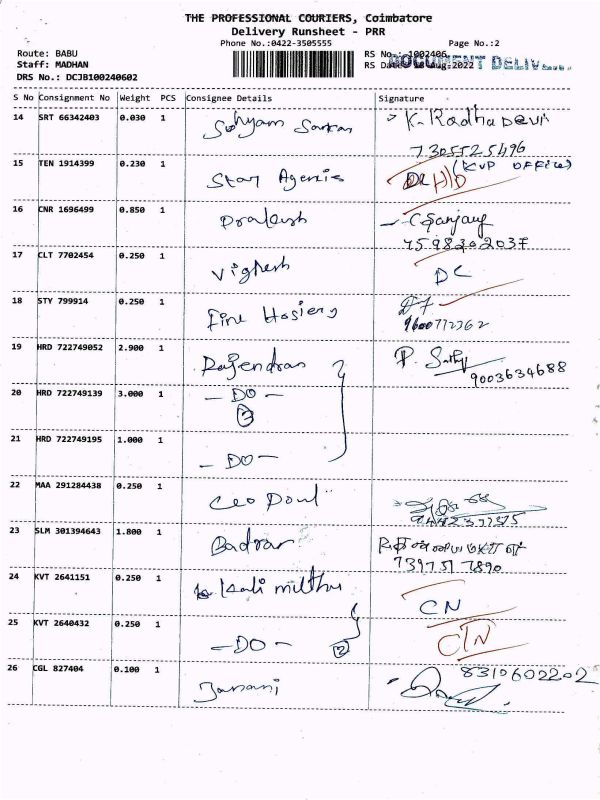 THE PROFESSIONAL COURIERS, Coimbatore
Delivery Runsheet - PRR
Phone No.:0422-3505555
Page No.:2
Route: BABU
RS No.: 1002406
Staff: MADHAN
RS Date: 18-Aug-2022
DOCUMENT
DRS No.: DCJB100240602
S No Consignment No Weight PCS Consignee Details Signature
14 SRT 66342403 0.030 1 K. Radha Devi
7305525496
15 TEN 1914399 0.230 1 Star Agencis (KVP OFFICE)
16 CNR 1696499 0.850 1 Prakash
7598302037
17 CLT 7702454 0.250 1 Vighesh DC
18 STY 799914 0.250 1 Fine Hosiery
9600772362
19 HRD 722749052 2.900 1 Rajendran P. Sathy
9003634688
20 HRD 722749139 3.000 1 - DO -
3
21 HRD 722749195 1.000 1 - DO -
22 MAA 291284438 0.250 1
23 SLM 301394643 1.800 1
7397517890
24 KVT 2641151 0.250 1 Kali CN
25 KVT 2640432 0.250 1 - DO - 2
26 CGL 827404 0.100 1 Janani 8310602202